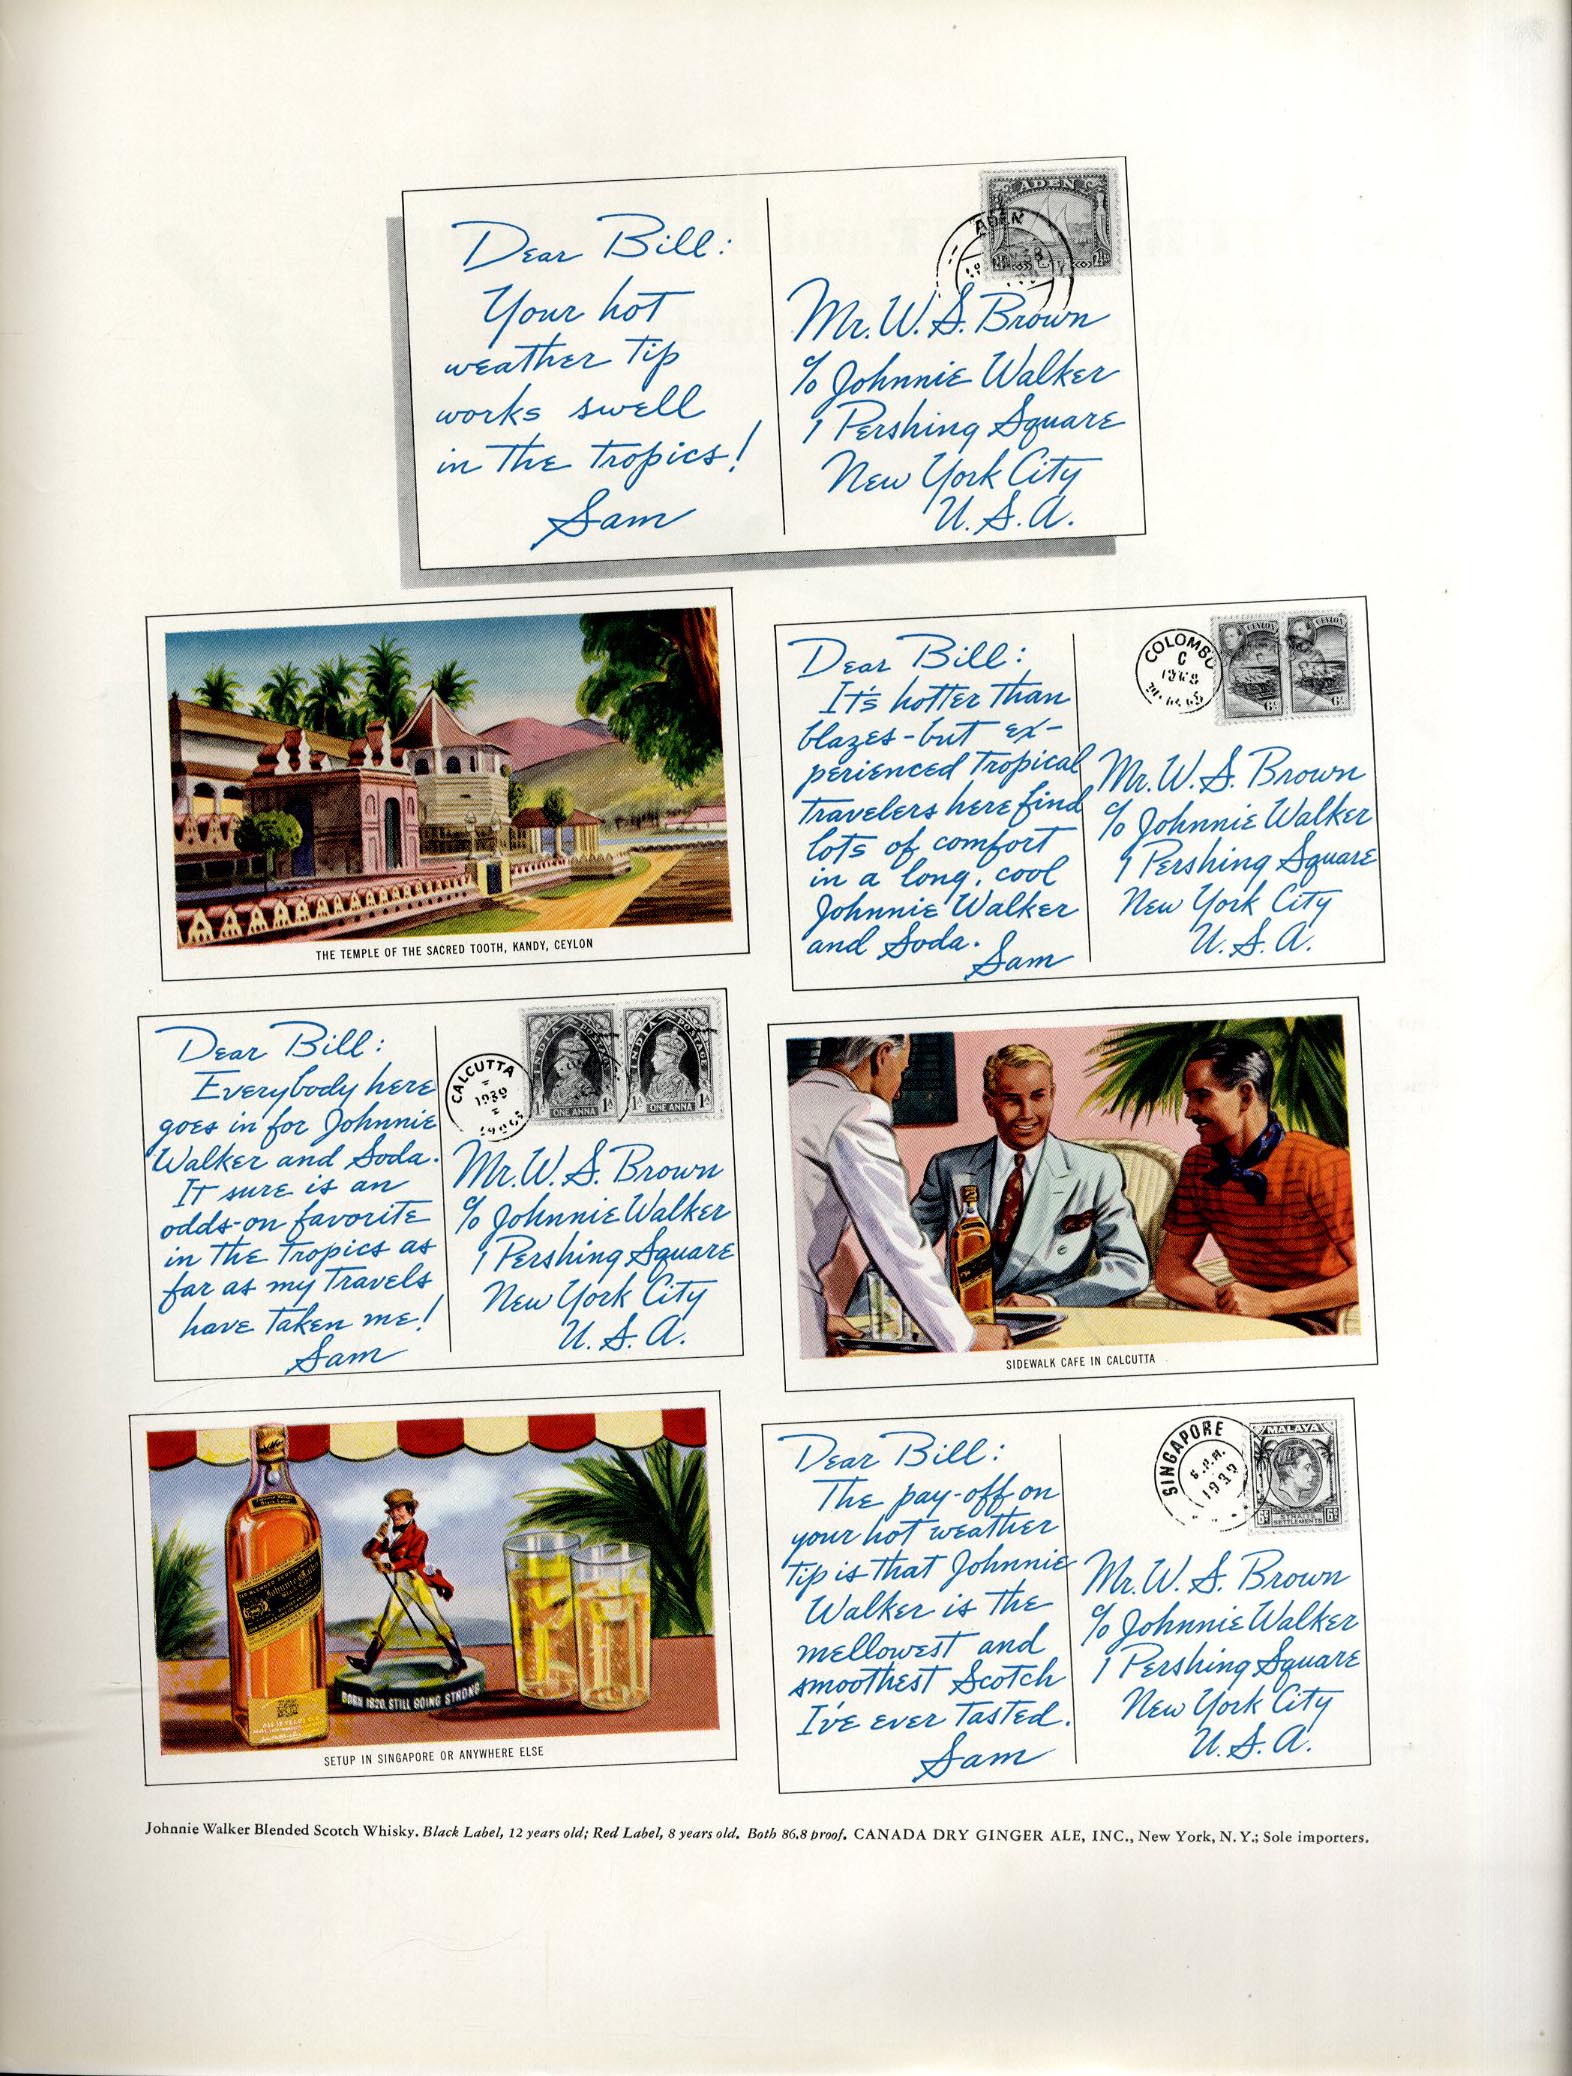 ADEN
ADEN
Dear Bill:
Your hot
weather tip
works swell
in the tropics!
Sam
Mr. W. S. Brown
c/o Johnnie Walker
1 Pershing Square
New York City
U. S. A.
THE TEMPLE OF THE SACRED TOOTH, KANDY, CEYLON
Dear Bill:
It's hotter than
blazes - but ex-
perienced tropical
travelers here find
lots of comfort
in a long, cool
Johnnie Walker
and Soda.
Sam
COLOMBO
C
CEYLON
CEYLON
6c
6c
Mr. W. S. Brown
c/o Johnnie Walker
1 Pershing Square
New York City
U. S. A.
Dear Bill:
Everybody here
goes in for Johnnie
Walker and Soda.
It sure is an
odds-on favorite
in the tropics as
far as my travels
have taken me!
Sam
CALCUTTA
1939
INDIA POSTAGE
1A ONE ANNA 1A
INDIA POSTAGE
1A ONE ANNA 1A
Mr. W. S. Brown
c/o Johnnie Walker
1 Pershing Square
New York City
U. S. A.
SIDEWALK CAFE IN CALCUTTA
Johnnie Walker
BORN 1820, STILL GOING STRONG
SETUP IN SINGAPORE OR ANYWHERE ELSE
Dear Bill:
The pay-off on
your hot weather
tip is that Johnnie
Walker is the
mellowest and
smoothest Scotch
I've ever tasted.
Sam
SINGAPORE
1939
MALAYA
6c STRAITS 6c
SETTLEMENTS
Mr. W. S. Brown
c/o Johnnie Walker
1 Pershing Square
New York City
U. S. A.
Johnnie Walker Blended Scotch Whisky. Black Label, 12 years old; Red Label, 8 years old. Both 86.8 proof. CANADA DRY GINGER ALE, INC., New York, N. Y.; Sole importers.